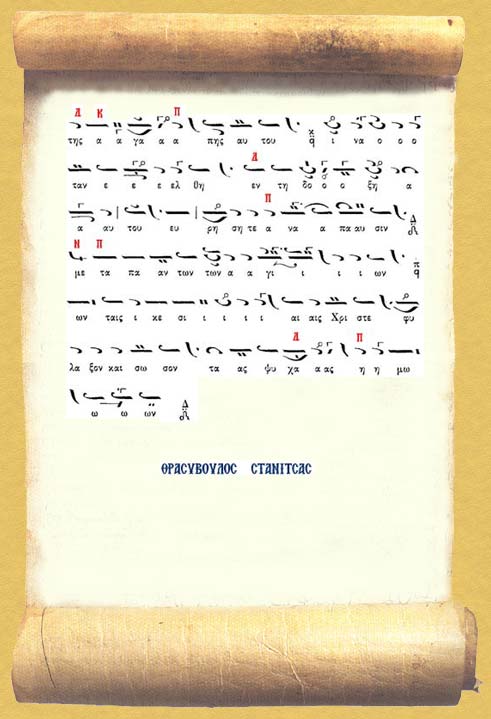 Δ Κ Π
της α α γα α α πης αυ του κ q ι να ο ο ο
Δ
ταν ε ε ε ελ θη εν τη δο ο ο ξη α
Π
α αυ του ευ ρη ση τε α να α παυ σιν Δ
Ν Π
με τα πα αν των των α α γι ι ι ι ων π q
ων ταις ι κε σι ι ι ι ι αι αις Χρι στε φυ
Δ Π
λα ξον και σω σον τα ας ψυ χα α ας η η μω
ω ω ων Δ
ΘΡΑCΥΒΟΥΛΟC CΤΑΝΙΤCΑC